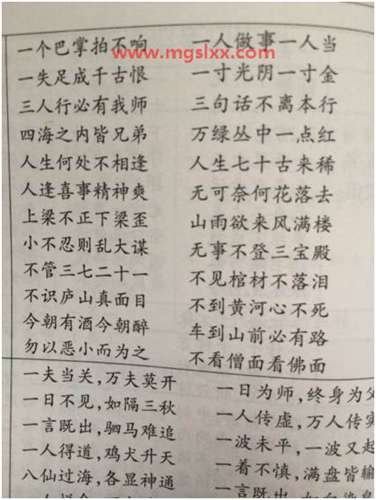 www.mgslxx.com
一个巴掌拍不响
一失足成千古恨
三人行必有我师
四海之内皆兄弟
人生何处不相逢
人逢喜事精神爽
上梁不正下梁歪
小不忍则乱大谋
不管三七二十一
不识庐山真面目
今朝有酒今朝醉
勿以恶小而为之
一人做事一人当
一寸光阴一寸金
三句话不离本行
万绿丛中一点红
人生七十古来稀
无可奈何花落去
山雨欲来风满楼
无事不登三宝殿
不见棺材不落泪
不到黄河心不死
车到山前必有路
不看僧面看佛面
一夫当关，万夫莫开
一日不见，如隔三秋
一言既出，驷马难追
一人得道，鸡犬升天
八仙过海，各显神通
一日为师，终身为父
一人传虚，万人传实
一波未平，一波又起
一着不慎，满盘皆输